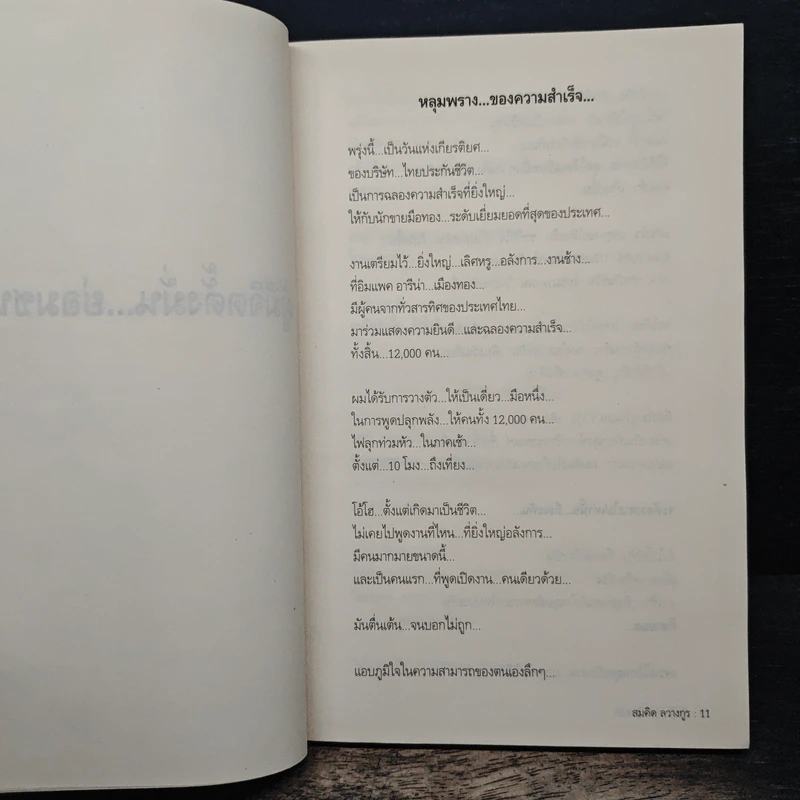 หลุมพราง...ของความสำเร็จ...
พรุ่งนี้...เป็นวันแห่งเกียรติยศ...
ของบริษัท...ไทยประกันชีวิต...
เป็นการฉลองความสำเร็จที่ยิ่งใหญ่...
ให้กับนักขายมือทอง...ระดับเยี่ยมยอดที่สุดของประเทศ...
งานเตรียมไว้...ยิ่งใหญ่...เลิศหรู...อลังการ...งานช้าง...
ที่อิมแพค อารีน่า...เมืองทอง...
มีผู้คนจากทั่วสารทิศของประเทศไทย...
มาร่วมแสดงความยินดี...และฉลองความสำเร็จ...
ทั้งสิ้น...12,000 คน...
ผมได้รับการวางตัว...ให้เป็นเดี่ยว...มือหนึ่ง...
ในการพูดปลุกพลัง...ให้คนทั้ง 12,000 คน...
ไฟลุกท่วมหัว...ในภาคเช้า...
ตั้งแต่...10 โมง...ถึงเที่ยง...
โอ้โฮ...ตั้งแต่เกิดมาเป็นชีวิต...
ไม่เคยไปพูดงานที่ไหน...ที่ยิ่งใหญ่อลังการ...
มีคนมากมายขนาดนี้...
และเป็นคนแรก...ที่พูดเปิดงาน...คนเดียวด้วย...
มันตื่นเต้น...จนบอกไม่ถูก...
แอบภูมิใจในความสามารถของตนเองลึกๆ...
สมคิด ลวางกูร : 11